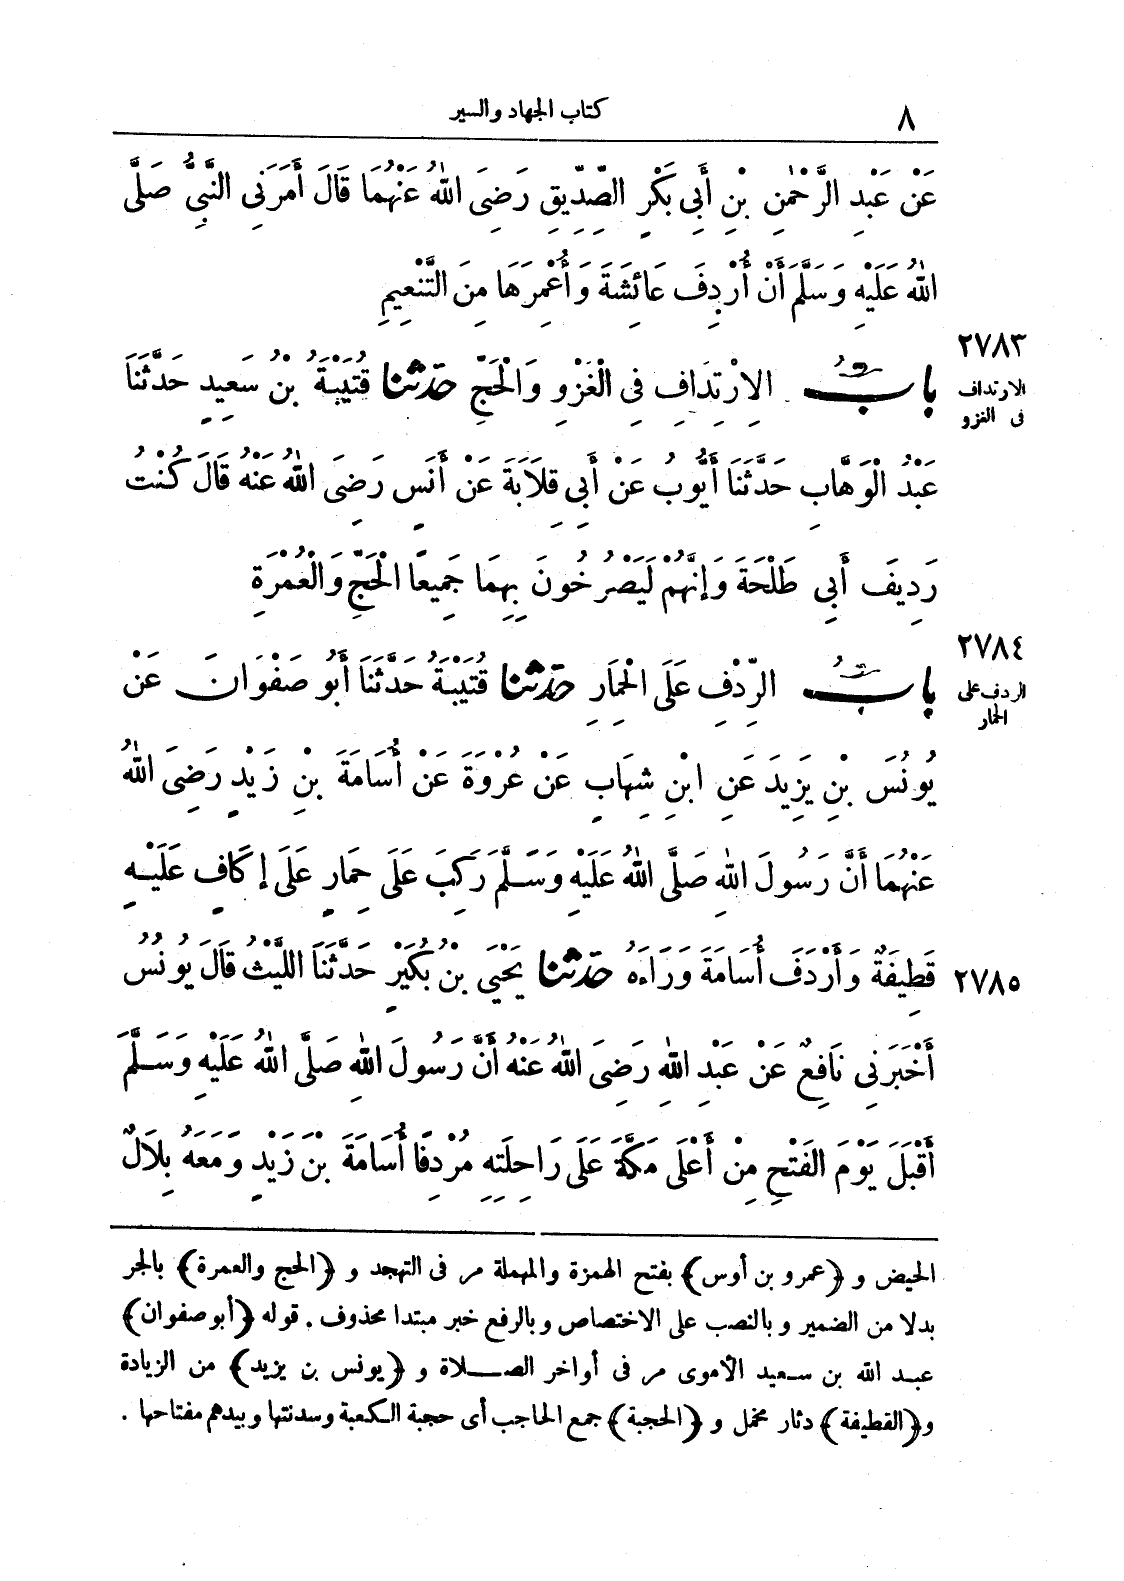 ٨
كتاب الجهاد والسير
عَنْ عَبْدِ الرَّحْمٰنِ بْنِ أَبِى بَكْرٍ الصِّدِّيقِ رَضِىَ اللهُ عَنْهُمَا قَالَ أَمَرَنِى النَّبِىُّ صَلَّى
اللهُ عَلَيْهِ وَسَلَّمَ أَنْ أُرْدِفَ عَائِشَةَ وَأُعْمِرَهَا مِنَ التَّنْعِيمِ
٢٧٨٣
الارتداف
فى الغزو
بابُ الِارْتِدَافِ فِى الْغَزْوِ وَالْحَجِّ حَدَّثَنَا قُتَيْبَةُ بْنُ سَعِيدٍ حَدَّثَنَا
عَبْدُ الْوَهَّابِ حَدَّثَنَا أَيُّوبُ عَنْ أَبِى قِلَابَةَ عَنْ أَنَسٍ رَضِىَ اللهُ عَنْهُ قَالَ كُنْتُ
رَدِيفَ أَبِى طَلْحَةَ وَإِنَّهُمْ لَيَصْرُخُونَ بِهِمَا جَمِيعًا الْحَجِّ وَالْعُمْرَةِ
٢٧٨٤
الردف على
الحمار
بابُ الرِّدْفِ عَلَى الْحِمَارِ حَدَّثَنَا قُتَيْبَةُ حَدَّثَنَا أَبُو صَفْوَانَ عَنْ
يُونُسَ بْنِ يَزِيدَ عَنِ ابْنِ شِهَابٍ عَنْ عُرْوَةَ عَنْ أُسَامَةَ بْنِ زَيْدٍ رَضِىَ اللهُ
عَنْهُمَا أَنَّ رَسُولَ اللهِ صَلَّى اللهُ عَلَيْهِ وَسَلَّمَ رَكِبَ عَلَى حِمَارٍ عَلَى إِكَافٍ عَلَيْهِ
٢٧٨٥
قَطِيفَةٌ وَأَرْدَفَ أُسَامَةَ وَرَاءَهُ حَدَّثَنَا يَحْيَى بْنُ بُكَيْرٍ حَدَّثَنَا اللَّيْثُ قَالَ يُونُسُ
أَخْبَرَنِى نَافِعٌ عَنْ عَبْدِ اللهِ رَضِىَ اللهُ عَنْهُ أَنَّ رَسُولَ اللهِ صَلَّى اللهُ عَلَيْهِ وَسَلَّمَ
أَقْبَلَ يَوْمَ الفَتْحِ مِنْ أَعْلَى مَكَّةَ عَلَى رَاحِلَتِهِ مُرْدِفًا أُسَامَةَ بْنَ زَيْدٍ وَمَعَهُ بِلَالٌ
الحيض و ﴿عمرو بن أوس﴾ بفتح الهمزة والمهملة مر فى التهجد و ﴿الحج والعمرة﴾ بالجر
بدلا من الضمير وبالنصب على الاختصاص وبالرفع خبر مبتدا محذوف . قوله ﴿أبو صفوان﴾
عبد الله بن سعيد الأموى مر فى أواخر الصلاة و ﴿يونس بن يزيد﴾ من الزيادة
و﴿القطيفة﴾ دثار مخمل و ﴿الحجبة﴾ جمع الحاجب أى حجبة الكعبة وسدنتها وبيدهم مفتاحها .